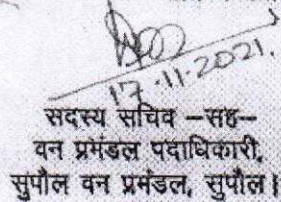 17.11.2021.
सदस्य सचिव –सह–
वन प्रमंडल पदाधिकारी,
सुपौल वन प्रमंडल, सुपौल।